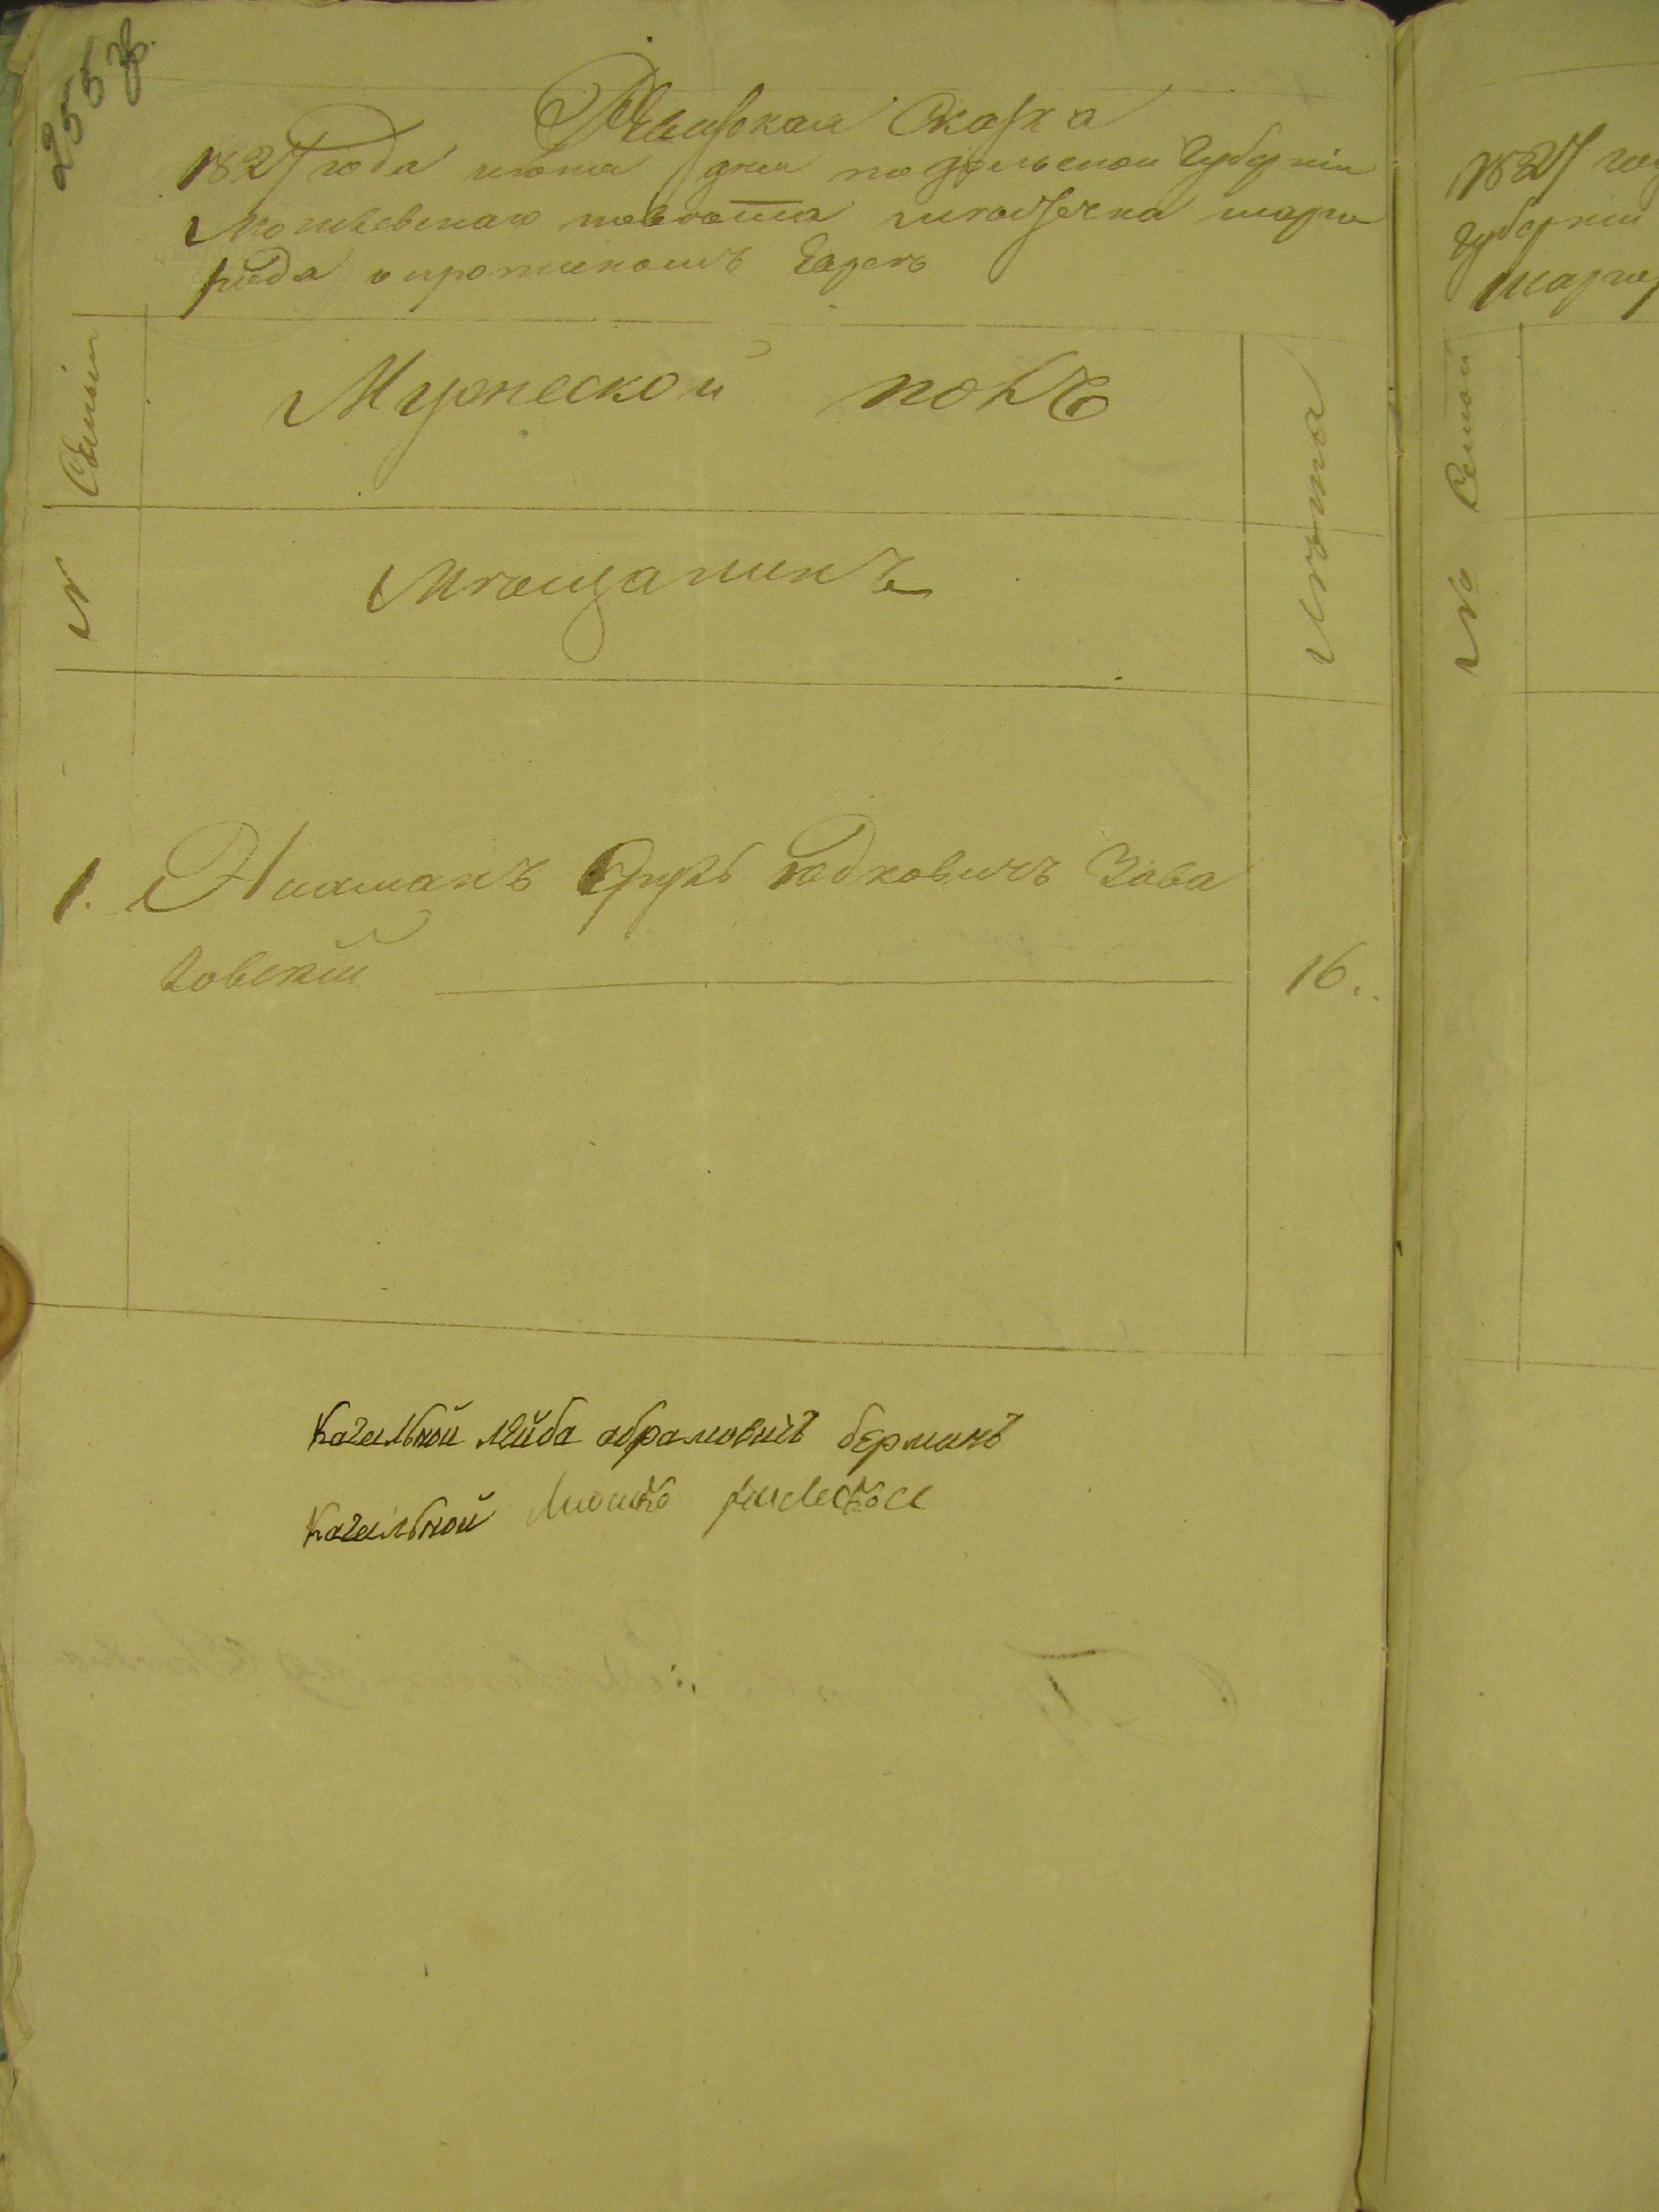 255 зв.
Ревизская Сказка
1827 года июня дня подольской Губернии
Могилевскаго повѣта мѣстечка шарго
рода о пропискомъ Еврею
Семьи
№
Мужеской полъ
Мѣщанинъ
лѣта
1. Нахманъ Юдковичъ Зава
ловский 16.
Кагальной лейба абрамовичъ берманъ
Кагальной Мошко
1827
Губернии
шаргор
№ Семьи